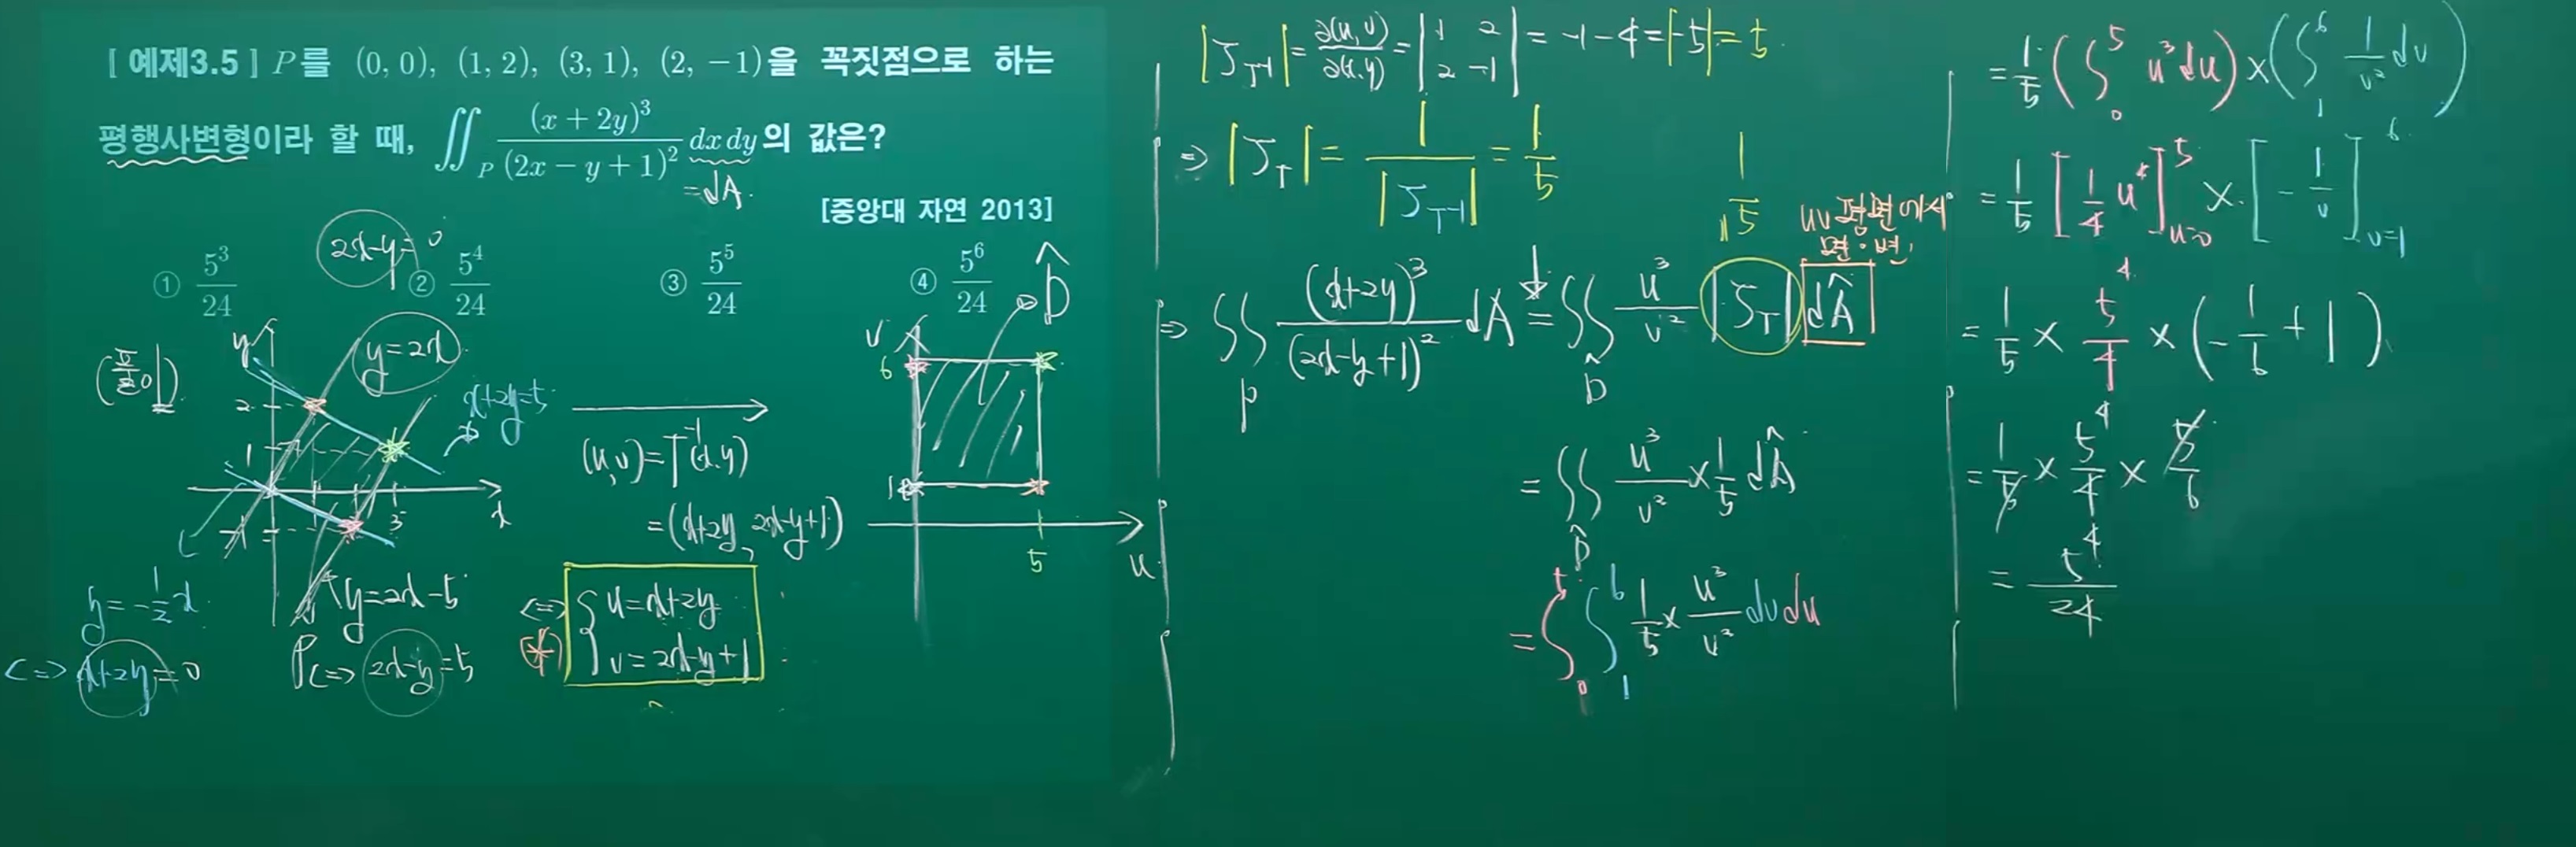 [ 예제3.5 ] P를 (0, 0), (1, 2), (3, 1), (2, −1)을 꼭짓점으로 하는
평행사변형이라 할 때, ∬_P (x + 2y)³/(2x − y + 1)² dx dy의 값은?
= dA.
[중앙대 자연 2013]
① 5³/24 ② 5⁴/24 ③ 5⁵/24 ④ 5⁶/24
2x−y=0
(풀이)
y
y=2x
x+2y=5
2
1
-1
3
x
y=−½x
<=> x+2y=0
y=2x−5
<=> 2x−y=5
(u,v)=T⁻¹(x,y)
=(x+2y, 2x−y+1)
<=> { u=x+2y
(*) v=2x−y+1
v
D̂
6
1
5
u
|J_{T⁻¹}| = ∂(u,v)/∂(x,y) = |1 2; 2 −1| = −1−4=|−5|=5
=> |J_T| = 1/|J_{T⁻¹}| = 1/5
1/5
uv평면에서
=> ∬_P (x+2y)³/(2x−y+1)² dA = ∬_D̂ u³/v² |J_T| dÂ
= ∬_D̂ u³/v² × 1/5 dÂ
= ∫₀⁵ ∫₁⁶ 1/5 × u³/v² dvdu
= 1/5 (∫₀⁵ u³du) × (∫₁⁶ 1/v² dv)
= 1/5 [1/4 u⁴]⁵_{u=0} × [−1/v]⁶_{v=1}
= 1/5 × 5⁴/4 × (−1/6 + 1)
= 1/5 × 5⁴/4 × 5/6
= 5⁴/24